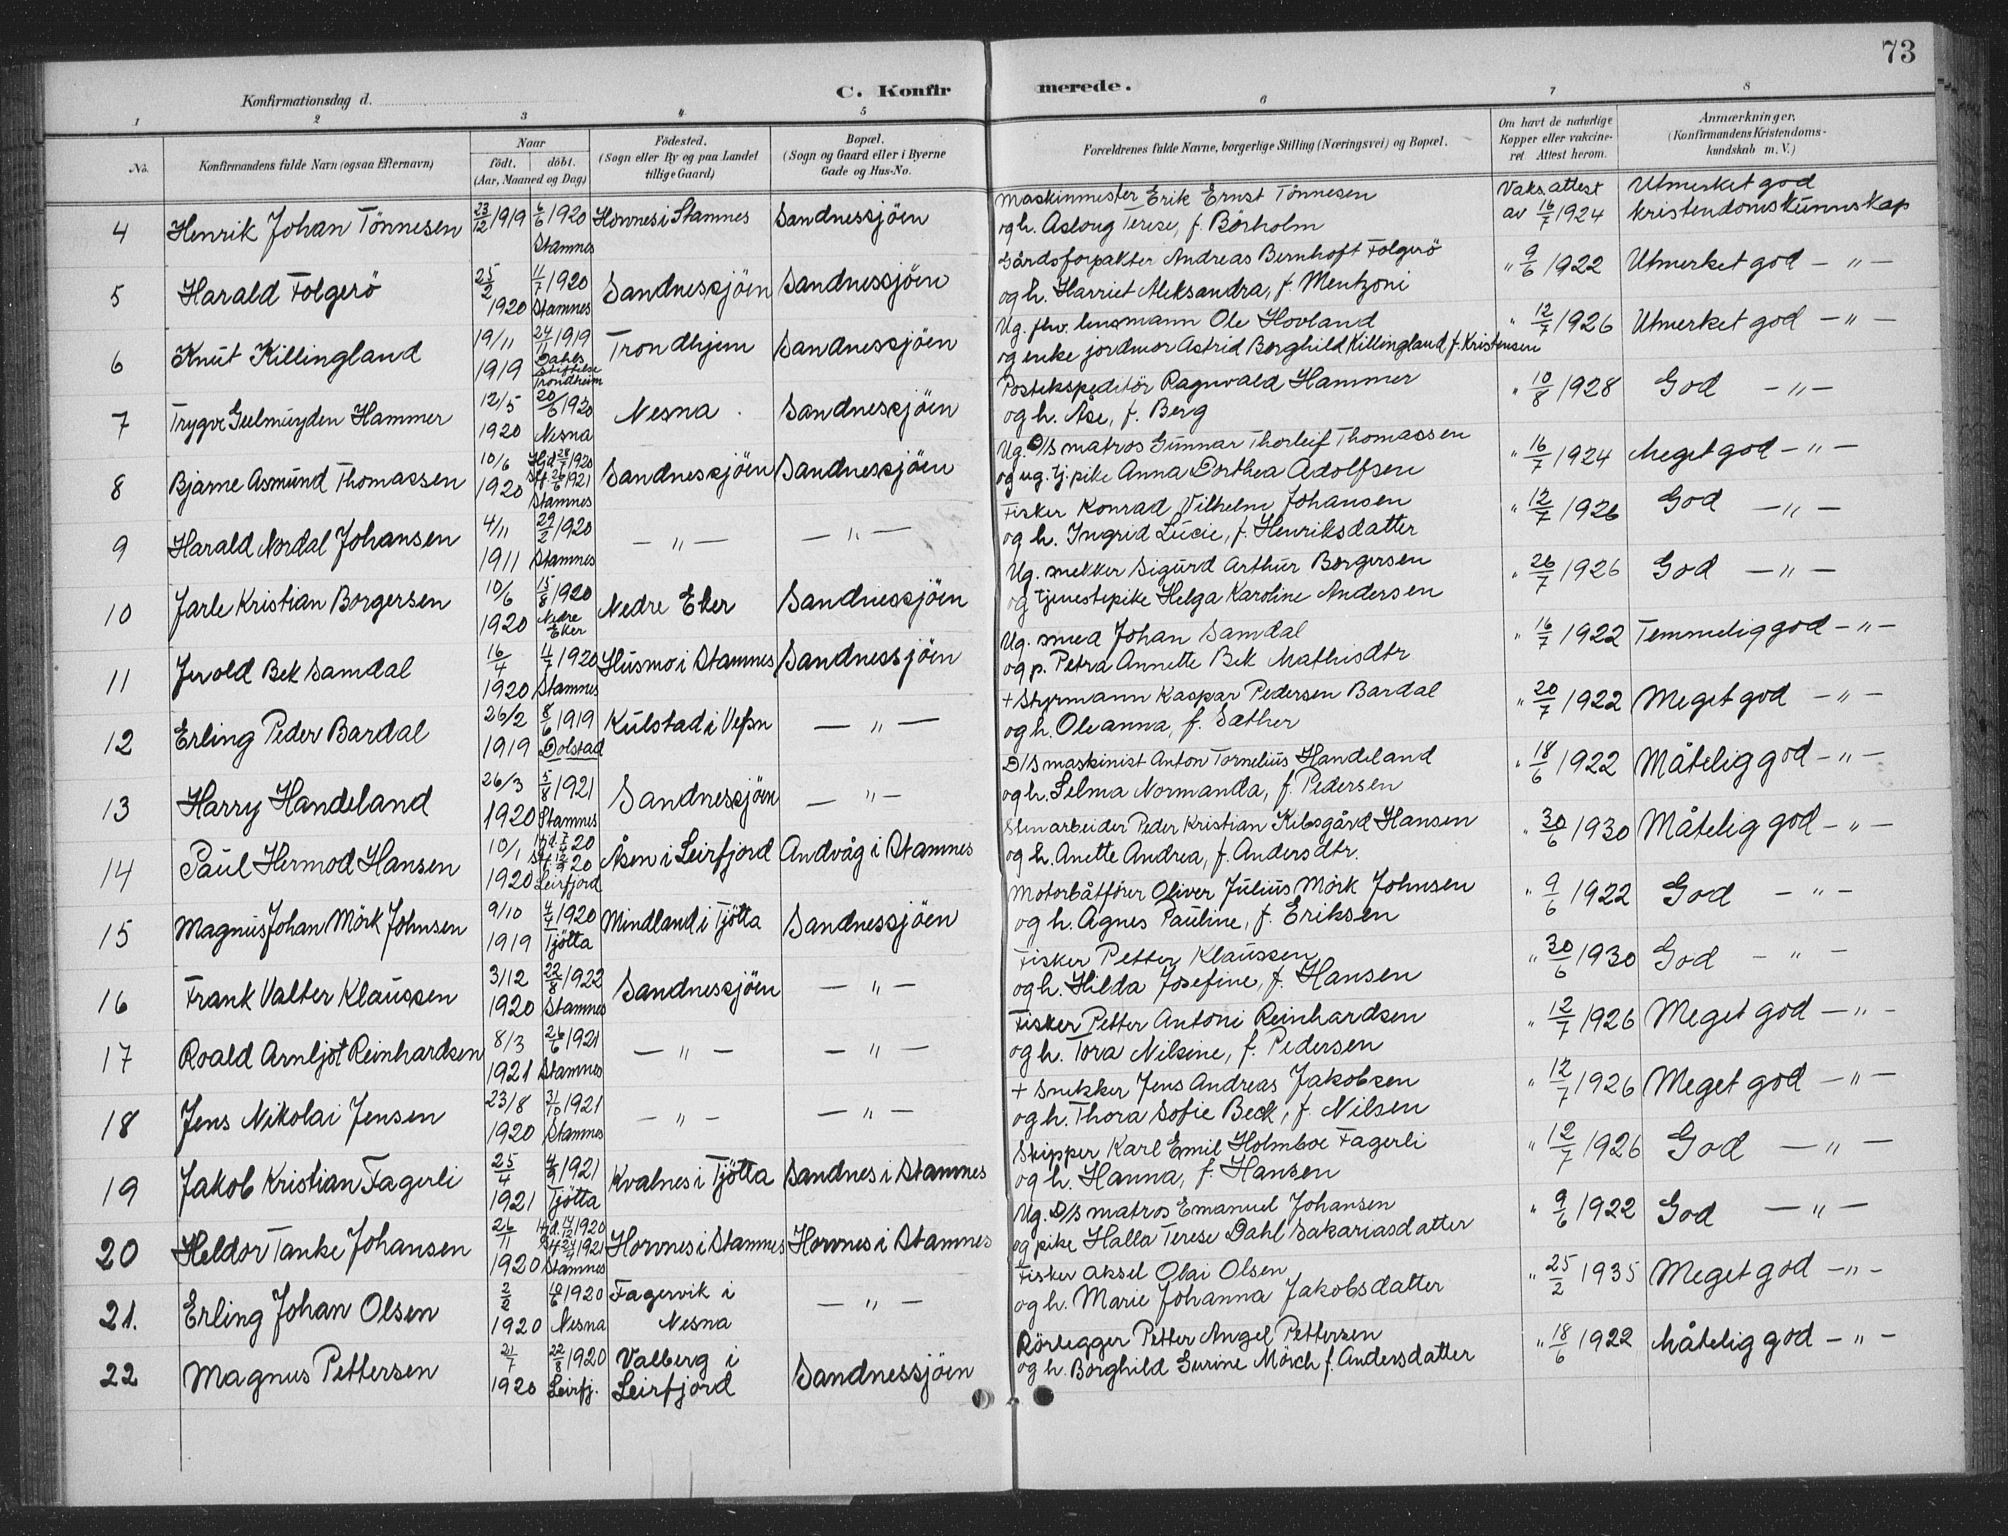 73
Konfirmationsdag d.
C. Konfirmerede.
1 2 3 4 5 6 7 8
No. Konfirmandens fulde Navn (ogsaa Efternavn) Naar födt. döbt. (Aar, Maaned og Dag) Födested. (Sogn eller By og paa Landet tillige Gaard) Bopæl. (Sogn og Gaard eller i Byerne Gade og Hus-No. Forældrenes fulde Navne, borgerlige Stilling (Næringsvei) og Bopæl. Om havt de naturlige Kopper eller vakcineret Attest herom. Anmærkninger. (Konfirmandens Kristendomskundskab m. V.)
4 Henrik Johan Tönnesen 23/12 1919 6/6 1920 Stamnes Hovnes i Stamnes Sandnessjöen Maskinmester Erik Ernst Tönnesen og h. Aslaug Terese, f. Börholm Vaks. attest av 16/7 1924 Utmerket god kristendomskunnskap
5 Harald Folgerö 25/2 1920 11/7 1920 Stamnes Sandnessjöen Sandnessjöen Gårdsforpakter Andreas Bernhoft Folgerö og h. Harriet Aleksandra, f. Mentzoni " 9/6 1922 Utmerket god — " —
6 Knut Killingland 19/11 1919 24/11 1919 Dahls Stiftelse Trondheim Trondhjem Sandnessjöen Ug. fhv. lensmann Ole Hovland og enke jordmor Astrid Borghild Killingland f. Kristensen " 12/7 1926 Utmerket god — " —
7 Trygve Geelmuyden Hammer 12/5 1920 20/6 1920 Nesna Nesna Sandnessjöen Postekspeditör Ragnvald Hammer og h. Åse, f. Berg " 10/8 1928 God — " —
8 Bjarne Asmund Thomassen 10/6 1920 Hjd. 28/7 1920 St. 26/6 1921 Stamnes Sandnessjöen Sandnessjöen Ug. D/S matros Gunnar Thorleif Thomassen og ug. tj. pike Anna Dorthea Adolfsen " 16/7 1924 Meget god — " —
9 Harald Nordal Johansen 4/11 1911 29/2 1920 Stamnes — " — — " — Fisker Konrad Vilhelm Johansen og h. Ingrid Lucie, f. Henriksdatter " 12/7 1926 God — " —
10 Jarle Kristian Borgersen 10/6 1920 15/8 1920 Nedre Eker Nedre Eker Sandnessjöen Ug. snekker Sigurd Arthur Borgersen og tjenestepike Helga Karoline Andersen " 26/7 1926 God — " —
11 Jerold Bek Samdal 16/4 1920 11/7 1920 Stamnes Husmo i Stamnes Sandnessjöen Ug. smed Johan Samdal og p. Petra Annette Bek Mathisdtr " 16/7 1922 Temmelig god — " —
12 Erling Peder Bardal 26/2 1919 8/6 1919 Dolstad Kulstad i Vefsn — " — + Styrmann Kaspar Pedersen Bardal og h. Oleanna, f. Sæther " 20/7 1922 Meget god — " —
13 Harry Handeland 26/3 1920 5/8 1921 Stamnes Sandnessjöen — " — D/S maskinist Anton Tornelius Handeland og h. Selma Normanda, f. Pedersen " 18/6 1922 Måtelig god — " —
14 Paul Hermod Hansen 10/1 1920 Leirfjord Åsen i Leirfjord Andvåg i Stamnes Stenarbeider Peder Kristian Kibsgård Hansen og h. Anette Andrea, f. Andersdtr. " 30/6 1930 Måtelig god — " —
15 Magnus Johan Mörk Johnsen 9/10 1919 4/4 1920 Tjötta Mindland i Tjötta Sandnessjöen Motorbåtförer Oliver Julius Mörk Johnsen og h. Agnes Pauline, f. Eriksen " 9/6 1922 God — " —
16 Frank Valter Klaussen 3/12 1920 22/8 1922 Stamnes Sandnessjöen — " — Fisker Petter Klaussen og h. Hilda Josefine, f. Hansen " 30/6 1930 God — " —
17 Roald Arnljot Reinhardsen 8/3 1921 26/6 1921 Stamnes — " — — " — Fisker Petter Antoni Reinhardsen og h. Tora Nilsine, f. Pedersen " 12/7 1926 Meget god — " —
18 Jens Nikolai Jensen 23/8 1920 31/10 1921 Stamnes — " — — " — + Snekker Jens Andreas Jakobsen og h. Thora Sofie Beck, f. Nilsen " 12/7 1926 Meget god — " —
19 Jakob Kristian Fagerli 25/4 1921 1921 Tjötta Kvalnes i Tjötta Sandnes i Stamnes Skipper Karl Emil Holmboe Fagerli og h. Hanna, f. Hansen " 12/7 1926 God — " —
20 Heldor Tanke Johansen 26/11 1920 Hjd. 17/12 1920 St. 24/4 1921 Stamnes Hovnes i Stamnes Hovnes i Stamnes Ug. D/S matros Emanuel Johansen og pike Halla Terese Dahl Sakariasdatter " 9/6 1922 God — " —
21. Erling Johan Olsen 2/2 1920 10/6 1920 Nesna Fagervik i Nesna — " — Fisker Aksel Olai Olsen og h. Marie Johanna Jakobsdatter " 25/2 1935 Meget god — " —
22 Magnus Pettersen 21/7 1920 22/8 1920 Leirfj. Valberg i Leirfjord Sandnessjöen Rörlegger Petter Angel Pettersen og h. Borghild Gurine Mörch f. Andersdatter " 18/6 1922 Måtelig god — " —